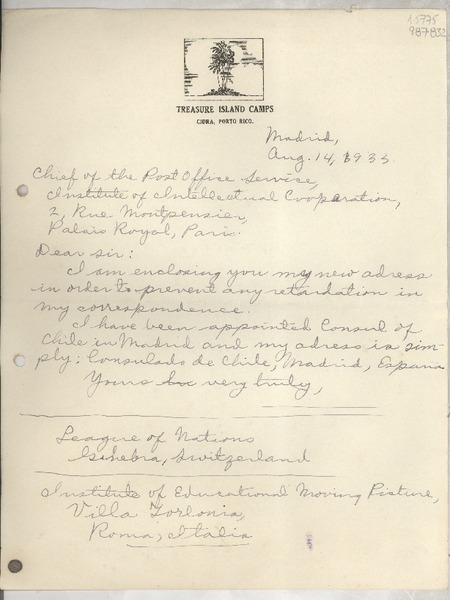 15775
987832
TREASURE ISLAND CAMPS
CIDRA, PORTO RICO.
Madrid,
Aug. 14, 1933.
Chief of the Post Office Service,
Institute of Intellectual Cooperation,
2, Rue Montpensier,
Palais Royal, Paris.
Dear sir:
I am enclosing you my new adress
in order to prevent any retardation in
my correspondence.
I have been appointed Consul of
Chile in Madrid and my adress is sim-
ply: Consulado de Chile, Madrid, Espana
Yours very truly,
League of Nations
Ginebra, Switzerland
Institute of Educational Moving Picture,
Villa Torlonia,
Roma, Italia